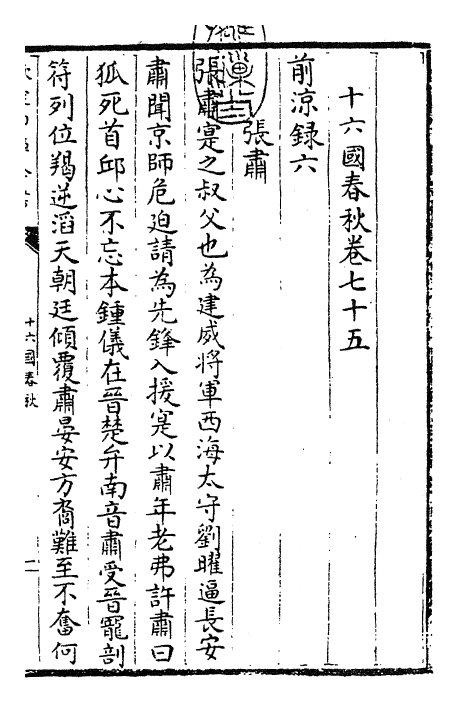 十六國春秋卷七十五
前涼録六
張肅
張肅寔之叔父也為建威將軍西海太守劉曜逼長安
肅聞京師危迫請為先鋒入援寔以肅年老弗許肅曰
狐死首邱心不忘本鍾儀在晉楚弁南音肅受晉寵剖
符列位羯逆滔天朝廷傾覆肅晏安方裔難至不奮何
十六國春秋
一